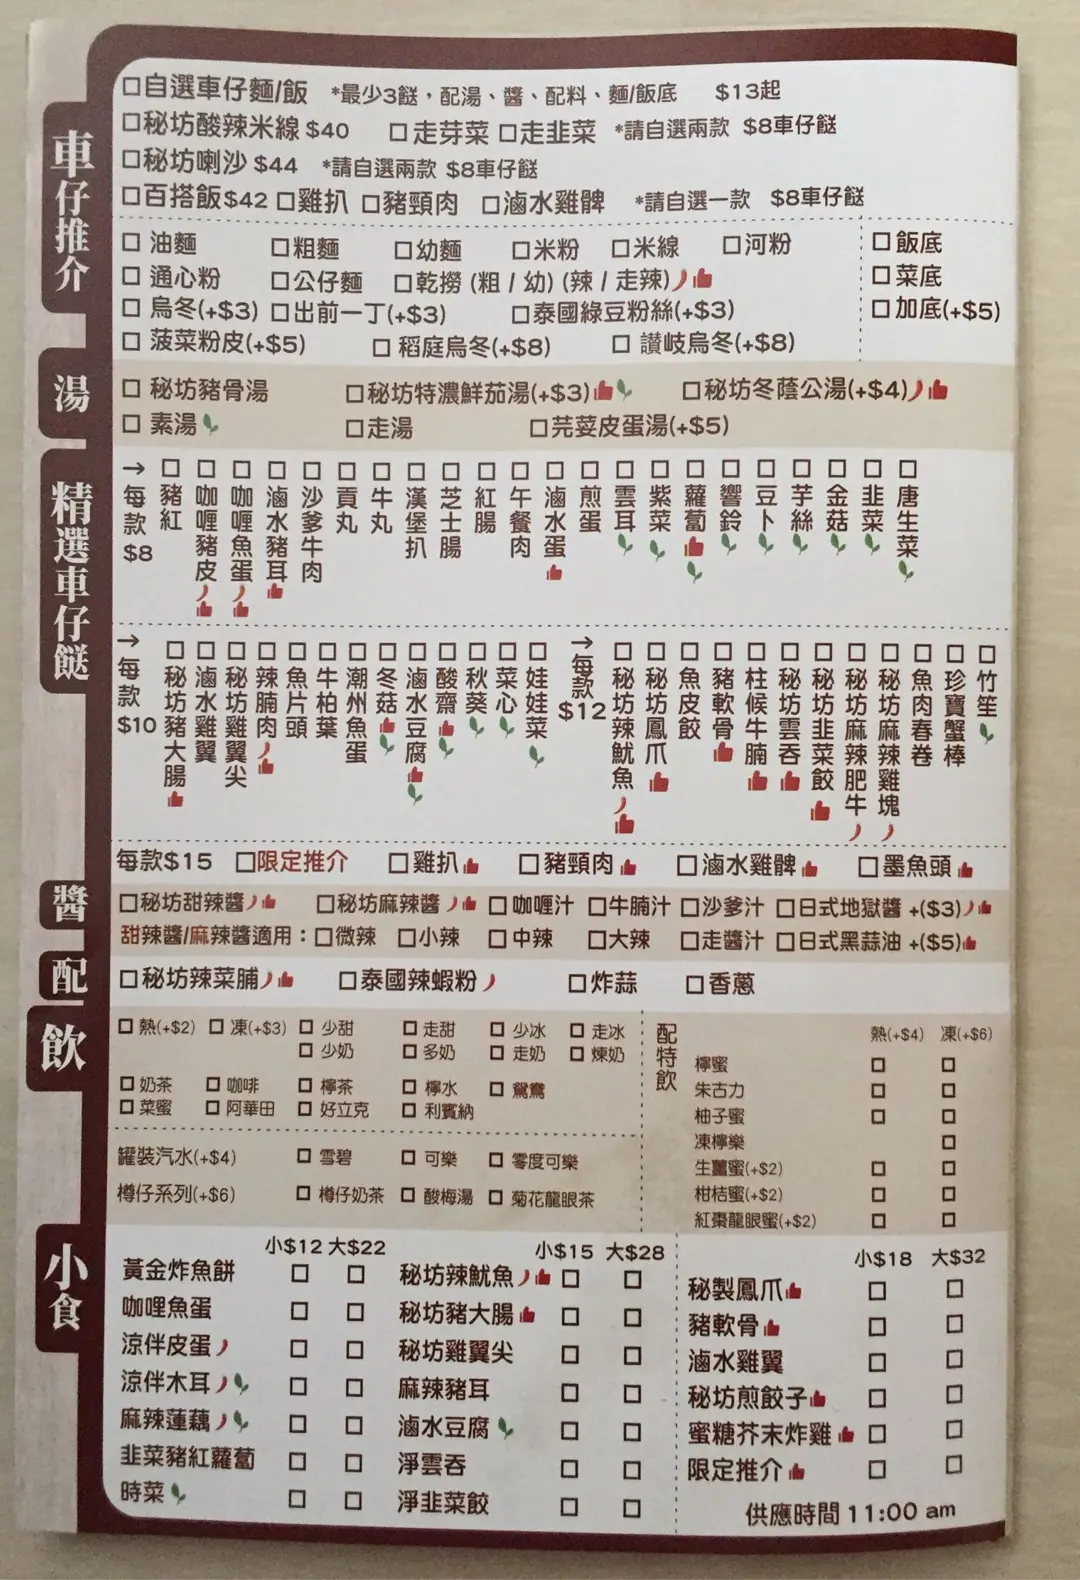 車仔推介
□自選車仔麵/飯 *最少3餸，配湯、醬、配料、麵/飯底 $13起
□秘坊酸辣米線 $40 □走芽菜 □走韭菜 *請自選兩款 $8車仔餸
□秘坊喇沙 $44 *請自選兩款 $8車仔餸
□百搭飯$42 □雞扒 □豬頸肉 □滷水雞髀 *請自選一款 $8車仔餸
□油麵 □粗麵 □幼麵 □米粉 □米線 □河粉 □飯底
□通心粉 □公仔麵 □乾撈 (粗 / 幼) (辣 / 走辣) □菜底
□烏冬(+$3) □出前一丁(+$3) □泰國綠豆粉絲(+$3) □加底(+$5)
□菠菜粉皮(+$5) □稻庭烏冬(+$8) □讚岐烏冬(+$8)
湯
□秘坊豬骨湯 □秘坊特濃鮮茄湯(+$3) □秘坊冬蔭公湯(+$4)
□素湯 □走湯 □芫荽皮蛋湯(+$5)
精選車仔餸
→每款$8
□豬紅
□咖喱豬皮
□咖喱魚蛋
□滷水豬耳
□沙爹牛肉
□貢丸
□牛丸
□漢堡扒
□芝士腸
□紅腸
□午餐肉
□滷水蛋
□煎蛋
□雲耳
□紫菜
□蘿蔔
□響鈴
□豆卜
□芋絲
□金菇
□韭菜
□唐生菜
→每款$10
□秘坊豬大腸
□滷水雞翼
□秘坊雞翼尖
□辣腩肉
□魚片頭
□牛柏葉
□潮州魚蛋
□冬菇
□滷水豆腐
□酸齋
□秋葵
□菜心
□娃娃菜
→每款$12
□秘坊辣魷魚
□秘坊鳳爪
□魚皮餃
□豬軟骨
□柱候牛腩
□秘坊雲吞
□秘坊韭菜餃
□秘坊麻辣肥牛
□秘坊麻辣雞塊
□魚肉春卷
□珍寶蟹棒
□竹笙
每款$15 □限定推介 □雞扒 □豬頸肉 □滷水雞髀 □墨魚頭
醬
□秘坊甜辣醬 □秘坊麻辣醬 □咖喱汁 □牛腩汁 □沙爹汁 □日式地獄醬 +($3)
甜辣醬/麻辣醬適用：□微辣 □小辣 □中辣 □大辣 □走醬汁 □日式黑蒜油 +($5)
配
□秘坊辣菜脯 □泰國辣蝦粉 □炸蒜 □香蔥
飲
□熱(+$2) □凍(+$3) □少甜 □走甜 □少冰 □走冰
□少奶 □多奶 □走奶 □煉奶
□奶茶 □咖啡 □檸茶 □檸水 □鴛鴦
□菜蜜 □阿華田 □好立克 □利賓納
罐裝汽水(+$4) □雪碧 □可樂 □零度可樂
樽仔系列(+$6) □樽仔奶茶 □酸梅湯 □菊花龍眼茶
配特飲
熱(+$4) 凍(+$6)
檸蜜 □ □
朱古力 □ □
柚子蜜 □ □
凍檸樂 □
生薑蜜(+$2) □ □
柑桔蜜(+$2) □ □
紅棗龍眼蜜(+$2) □ □
小食
小$12 大$22
黃金炸魚餅 □ □
咖哩魚蛋 □ □
涼伴皮蛋 □ □
涼伴木耳 □ □
麻辣蓮藕 □ □
韭菜豬紅蘿蔔 □ □
時菜 □ □
小$15 大$28
秘坊辣魷魚 □ □
秘坊豬大腸 □ □
秘坊雞翼尖 □ □
麻辣豬耳 □ □
滷水豆腐 □ □
淨雲吞 □ □
淨韭菜餃 □ □
小$18 大$32
秘製鳳爪 □ □
豬軟骨 □ □
滷水雞翼 □ □
秘坊煎餃子 □ □
蜜糖芥末炸雞 □ □
限定推介 □ □
供應時間 11:00 am